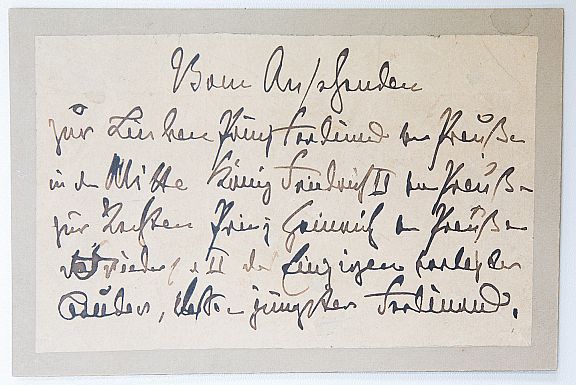 Vom Anschauenden
zur Linken Prinz Ferdinand von Preußen
in der Mitte König Friedrich II von Preußen
zur Rechten Prinz Heinrich von Preußen
Friedrichs II des Einzigen vorletzter
Bruder, jüngster Ferdinand.